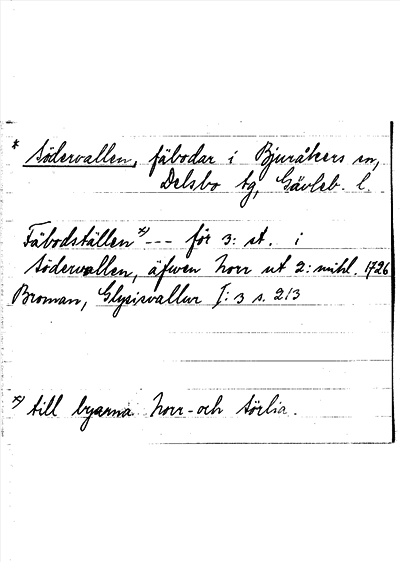 * Södervallen, fäbodar i Bjuråkers sn,
Delsbo tg, Gävleb. l.
Fäbodställen x) --- för 3: st. i
Södervallen, äfwen norr ut 2: mihl. 1726
Broman, Glysisvallur I: 3 s. 213
x) till byarna Norr- och Sörlia.